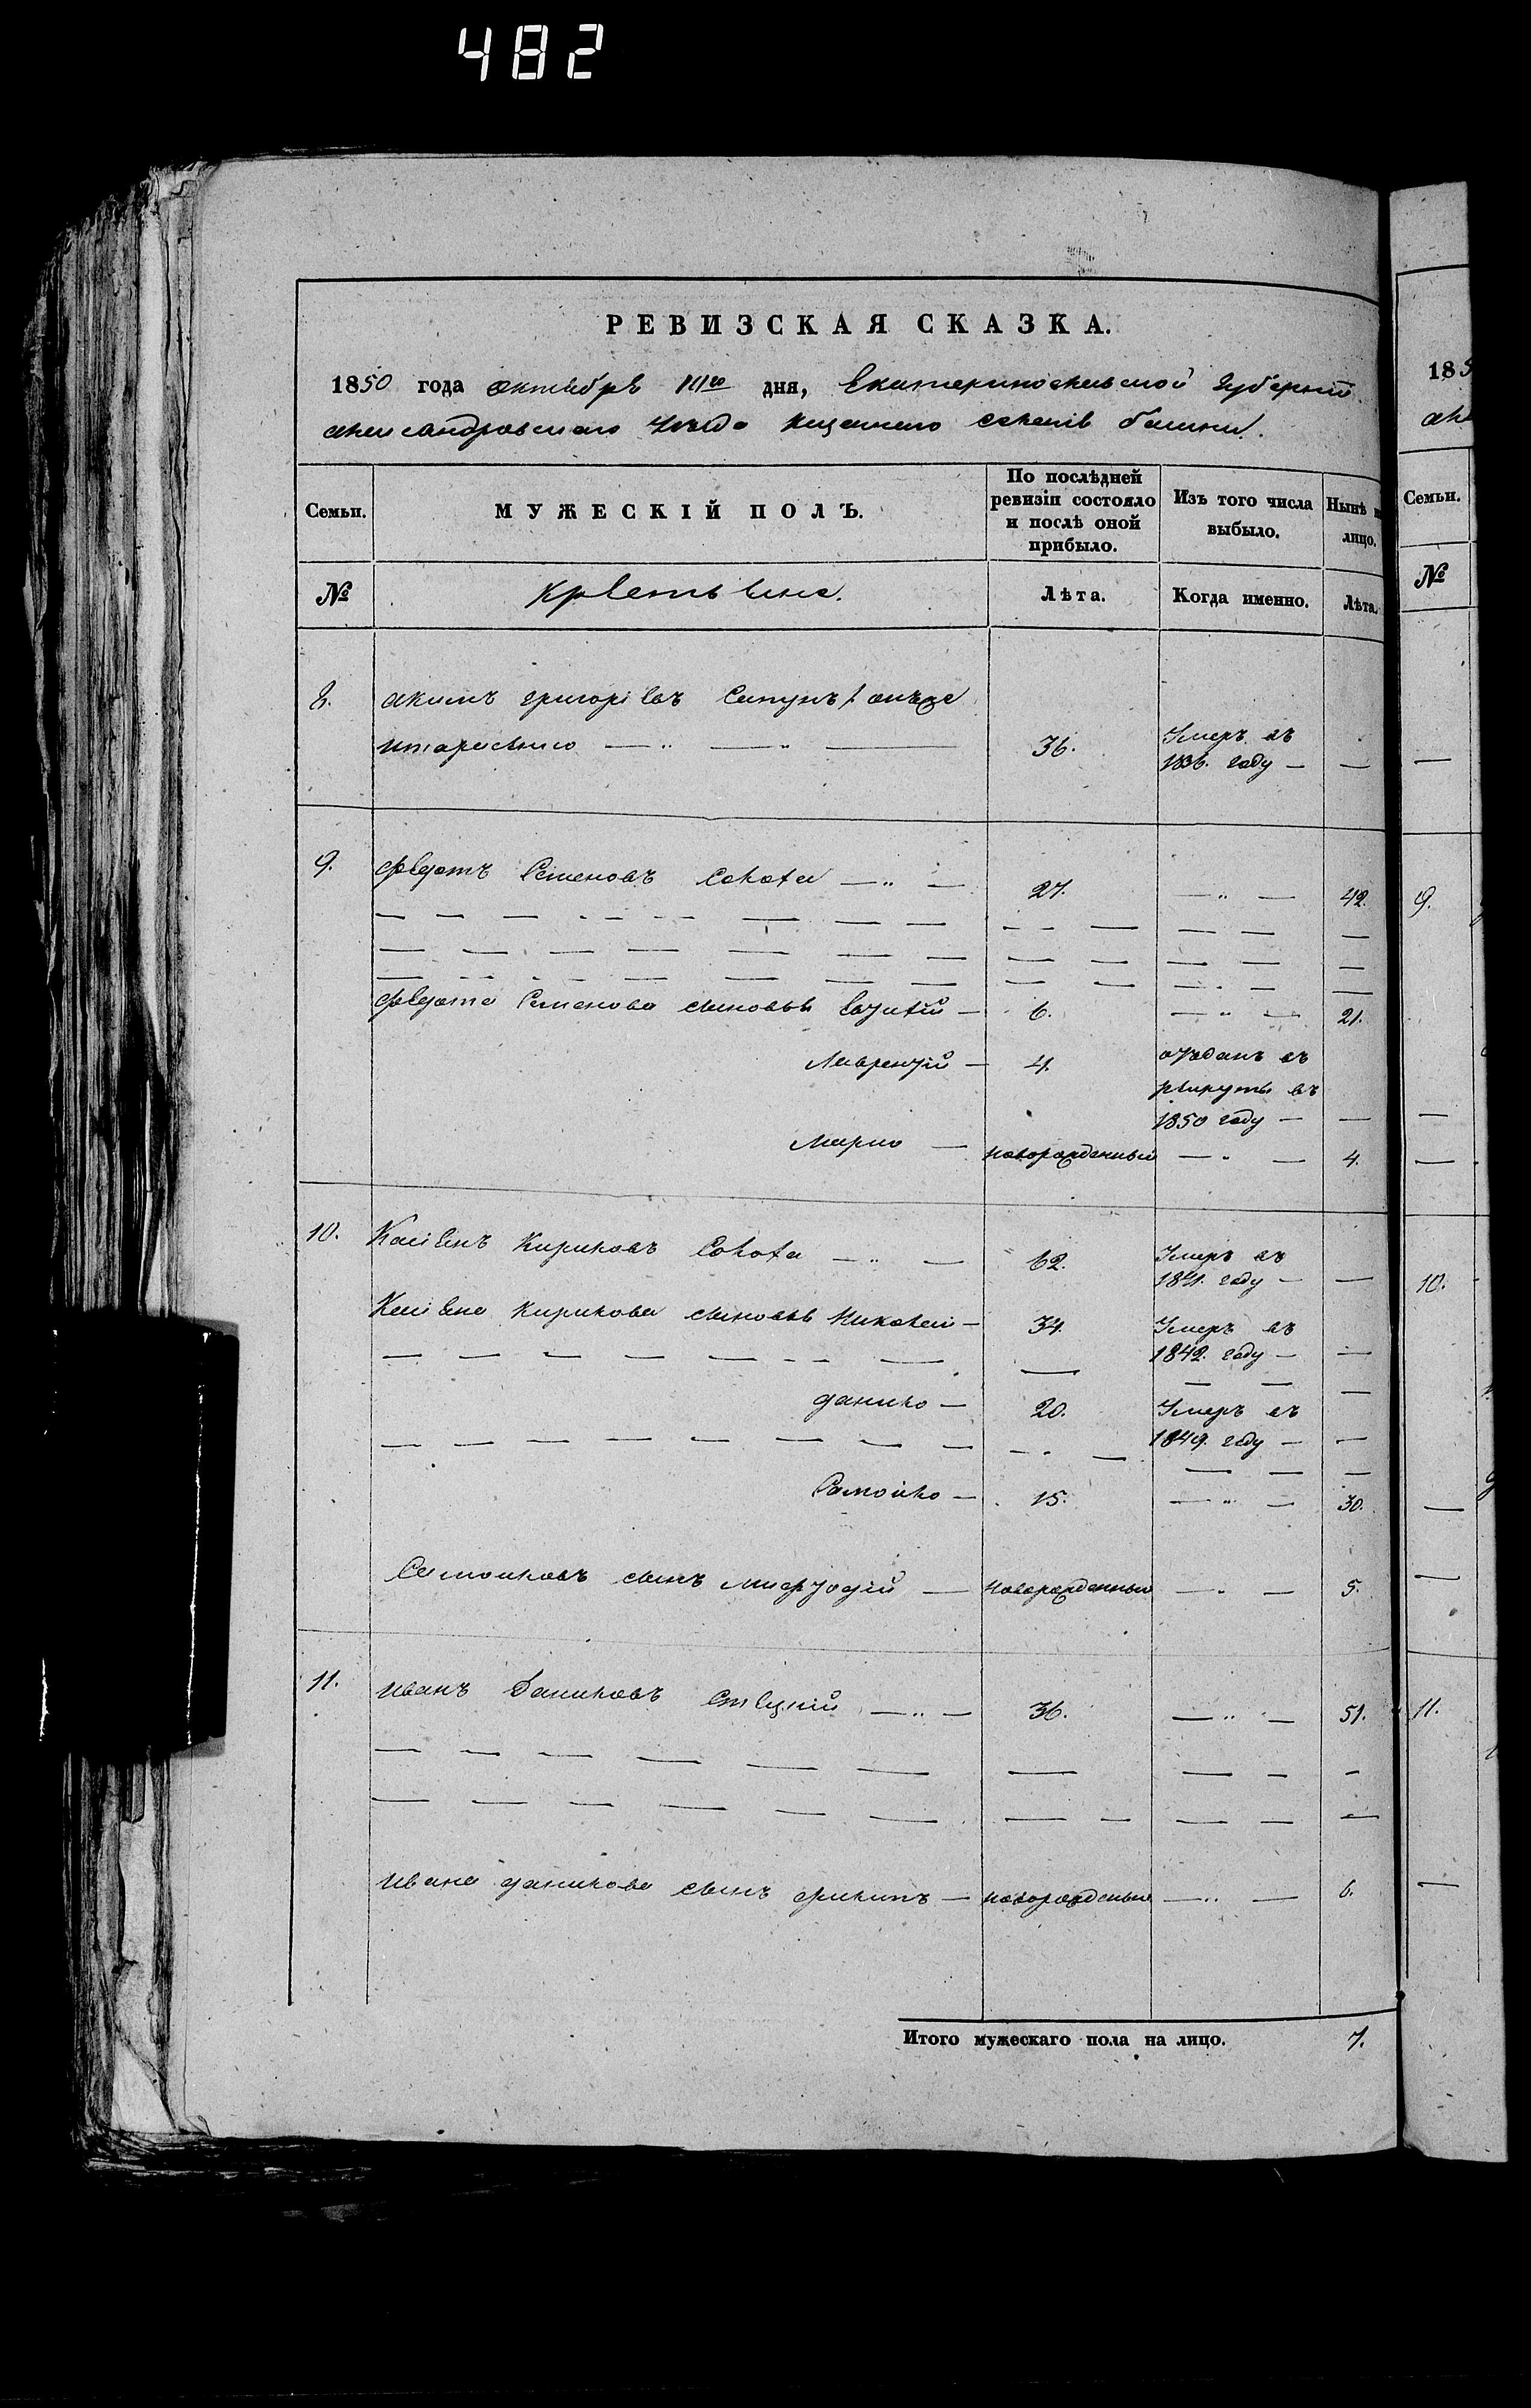 482
РЕВИЗСКАЯ СКАЗКА.
1850 года октября дня, Екатеринославской губернии
александровского уезда казенного селенія балки.
Семьи.
МУЖЕСКІЙ ПОЛЪ.
По послѣдней ревизіи состояло и послѣ оной прибыло.
Изъ того числа выбыло.
Нынѣ на лицо.
№
Крестьяне.
Лѣта.
Когда именно.
Лѣта.
8. акимъ григоріевъ онъже
36. Умеръ въ
1836. году — —
9. федотъ Семеновъ Сокола — „ — 27. — „ — 42.
федота Семенова сыновья — 6. — „ — 21.
Лаврентій — 4. отданъ въ
рекруты въ
1850 году — —
Марко — новорожденный — „ — 4.
10. Кириловъ Сокола — „ — 62. Умеръ въ
1841. году — —
Кирилова сыновья Николай — 34. Умеръ въ
1842. году — —
данило — 20. Умеръ въ
1849. году — —
Самойло — 15. — „ — 30.
Самойловъ сынъ мифодій — новорожденный — „ — 5.
11. иванъ Даниловъ — „ — 36. — „ — 51.
ивана данилова сынъ филипъ — новорожденный — „ — 6.
Итого мужескаго пола на лицо. 7.
185
Семьи.
№
9.
10.
11.